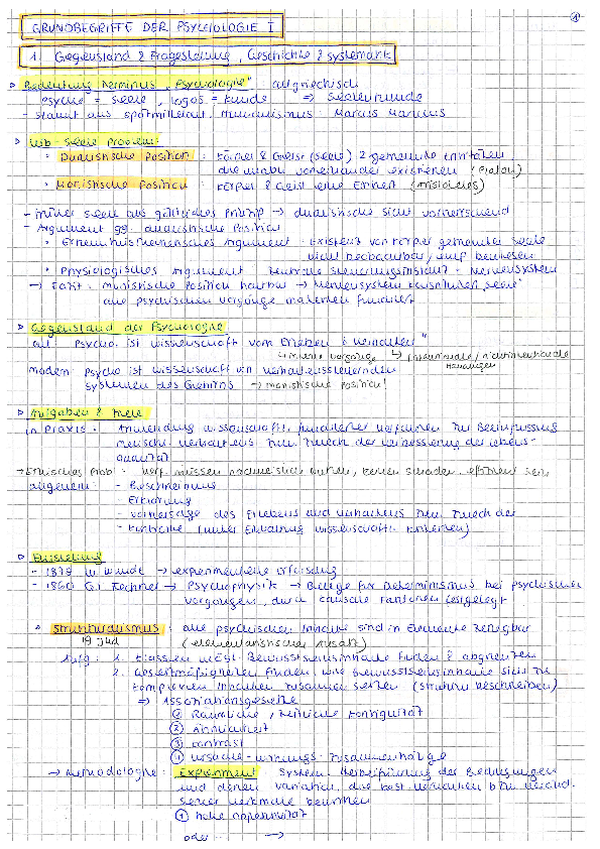 ①
GRUNDBEGRIFFE DER PSYCHOLOGIE I
1. Gegenstand & Fragestellung, Geschichte & Systematik
Bedeutung Terminus "Psychologie" altgriechisch
psyche = Seele, logos = Kunde ⇒ Seelenkunde
- stammt aus spätmittelalt. Humanismus: Marcus Marulus
Leib-Seele Problem:
• Dualistische Position: Körper & Geist (Seele) 2 getrennte Entitäten
die unabh. voneinander existieren (Platon)
• Monistische Position: Körper & Geist eine Einheit (Aristoteles)
- früher Seele als göttliches Prinzip → dualistische Sicht vorherrschend
- Argument gg. dualistische Position
• Erkenntnistheoretisches Argument: Existenz von Körper getrennter Seele
nicht beobachtbar, empir. beweisbar
• Physiologisches Argument: zentrale Steuerungsinstanz = Nervensystem
→ FAKT: monistische Position haltbar → Nervensystem konstituiert "Seele"
alle psychischen Vorgänge materiell fundiert
Gegenstand der Psychologie
alt: Psycho. ist Wissenschaft vom Erleben & Verhalten"
innere Vorgänge ↳ intentionale / nichtintentionale
Handlungen
modern: Psycho ist Wissenschaft von verhaltenssteuernden
Systemen des Gehirns → monistische Position!
Aufgaben & Ziele
in Praxis: Anwendung wissenschaftl. fundierter Verfahren zur Beeinflussung
menschl. Verhaltens zum Zweck der Verbesserung der Lebens-
qualität
→ Ethisches Prob: Verf. müssen nachweislich nutzen, keinen Schaden, effizient sein
allgemein: - Beschreibung
Erklärung
- Vorhersage des Erlebens und Verhaltens zum Zweck der
- Kontrolle (unter Einhaltung wissenschaftl. Kriterien)
Entstehung
- 1879 W. Wundt → experimentelle Erforschung
- 1860 G.T. Fechner → Psychophysik → Belege für Determinismus bei psychischen
Vorgängen, durch kausale Faktoren festgelegt
• Strukturalismus: alle psychischen Inhalte sind in Elemente zerlegbar
19 Jhd (elementaristischer Ansatz)
Aufg: 1. Klassen mögl. Bewusstseinsinhalte finden & abgrenzen
2. Gesetzmäßigkeiten finden, wie Bewusstseinsinhalte sich zu
komplexen Inhalten zusammensetzen (Struktur beschreiben)
⇒ Assoziationsgesetze
① Räumliche, zeitliche Kontiguität
② Ähnlichkeit
③ Kontrast
④ Ursache-Wirkungs-Zusammenhänge
→ Methodologie: Experiment System. Herbeiführung der Bedingungen
und deren Variation, die best. Verhalten bzw.
seiner Merkmale bewirken
① hohe Apparativität
oder →